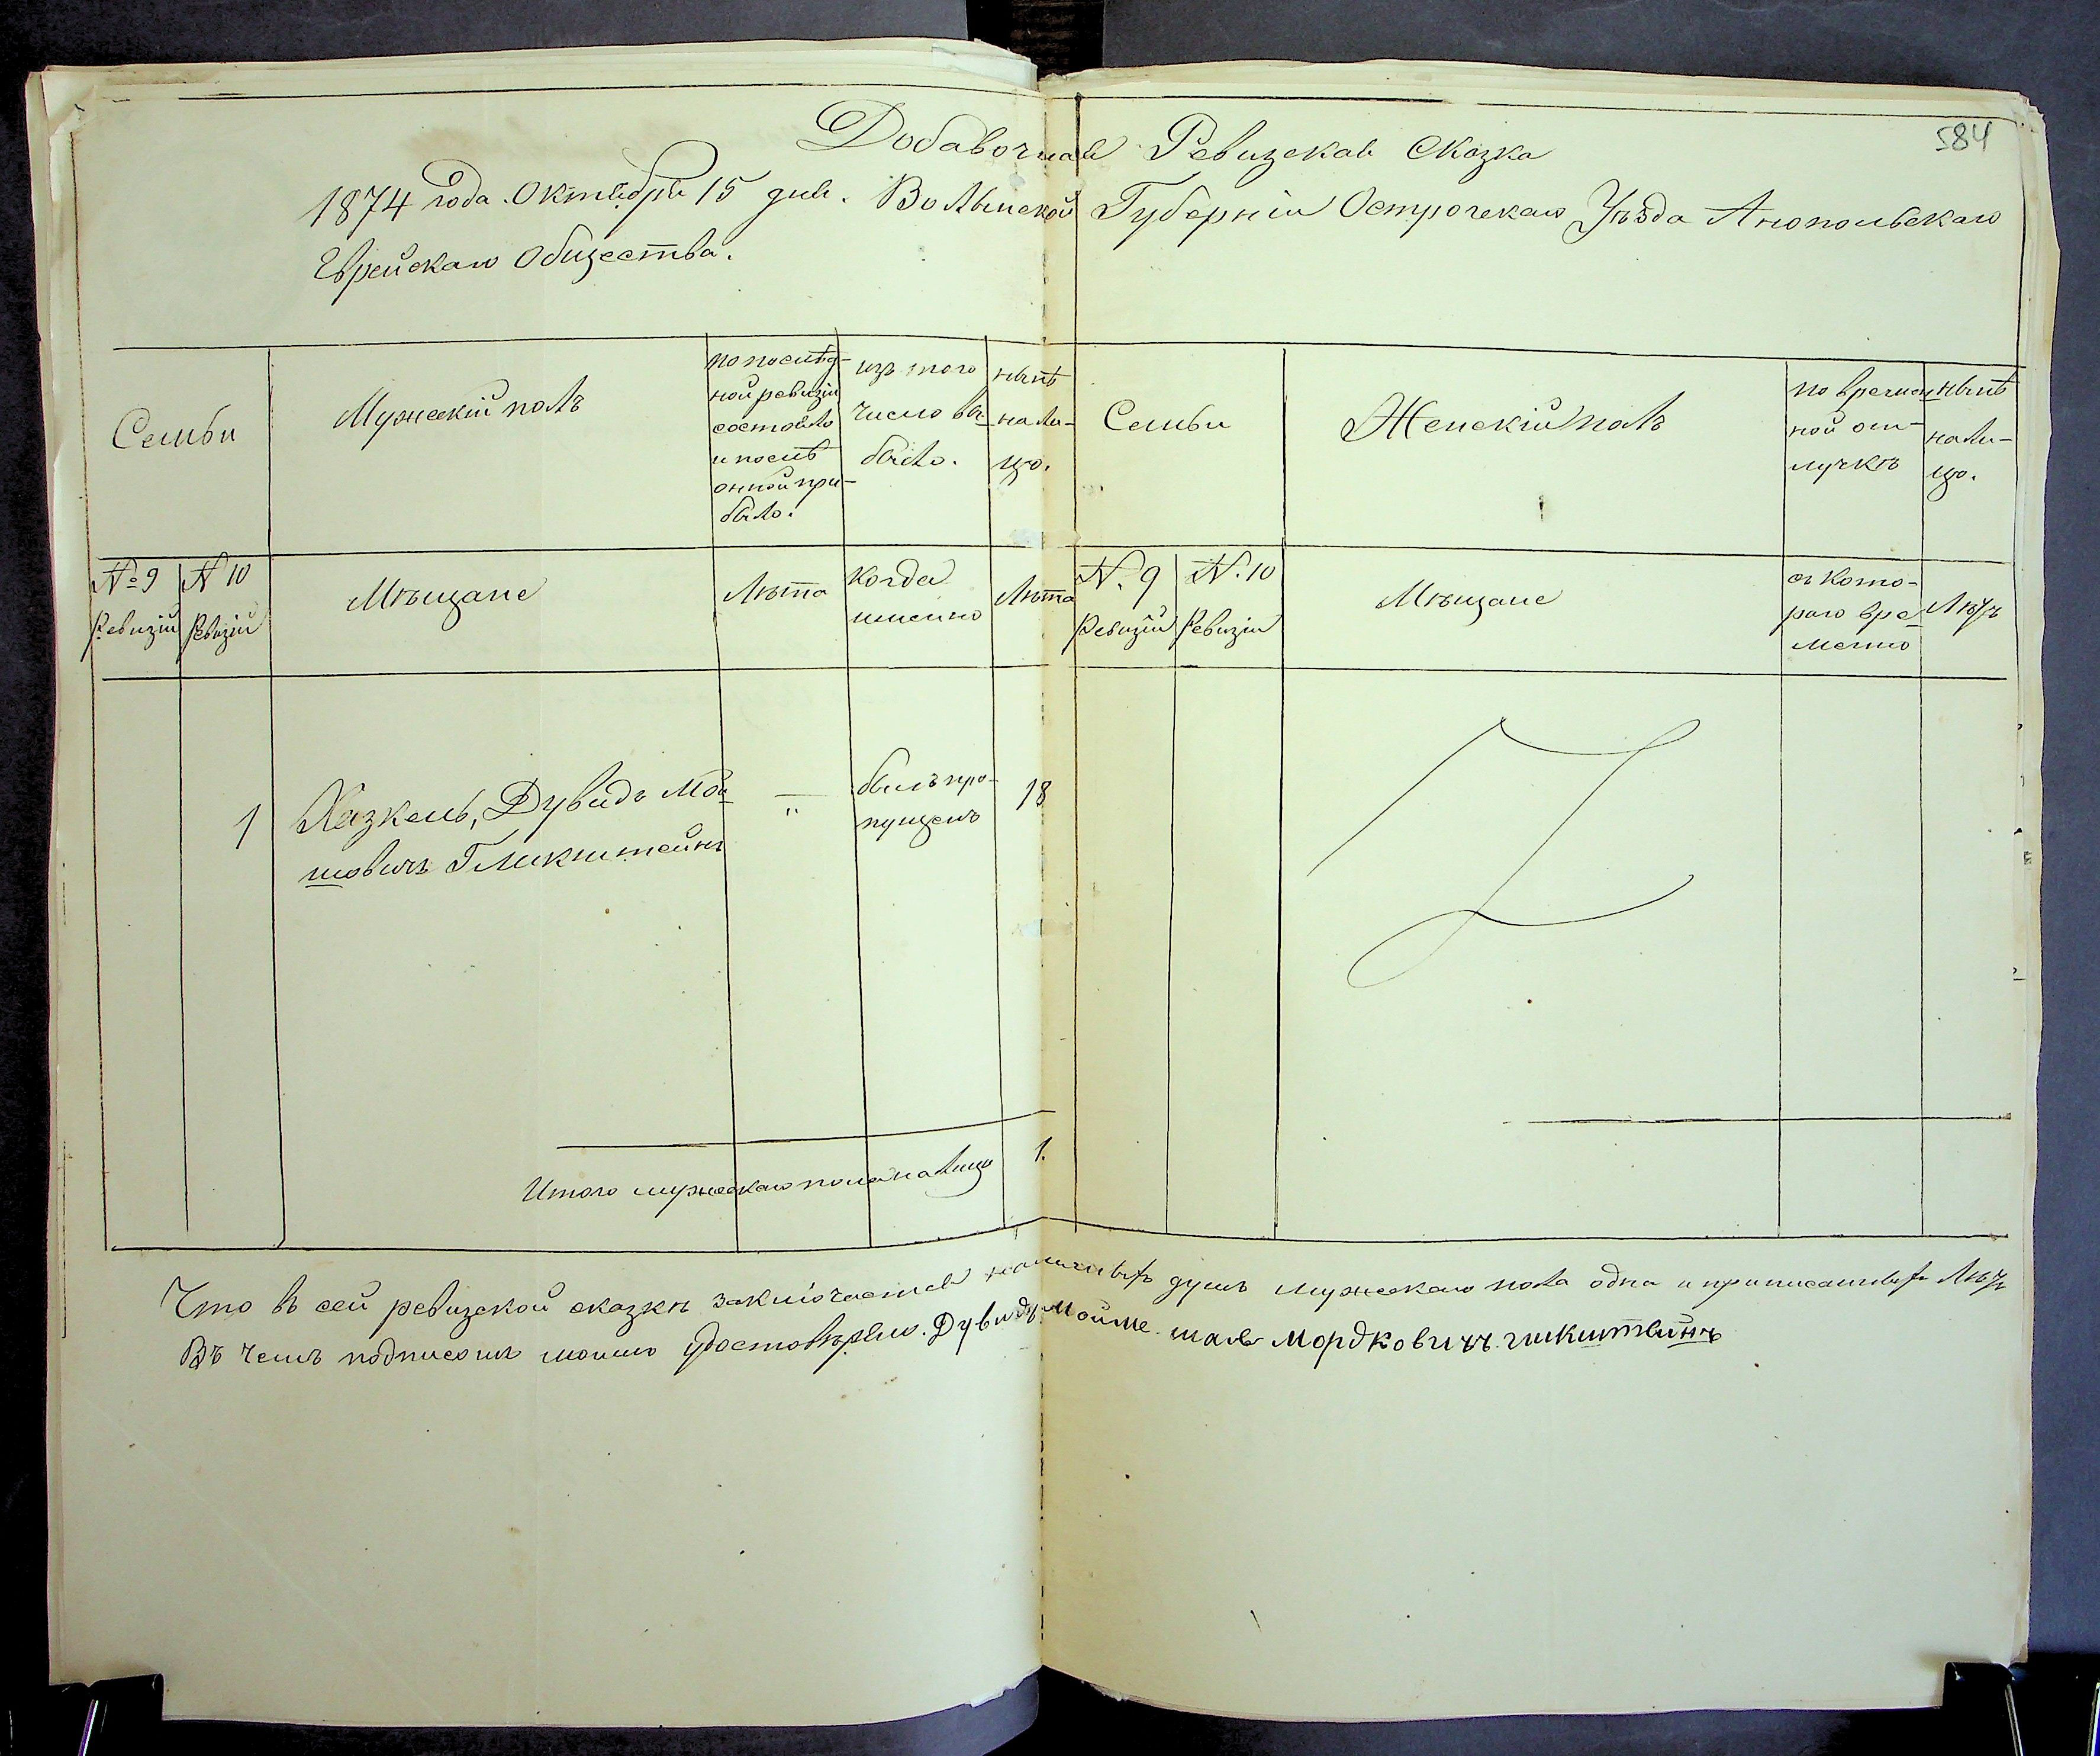 584
Добавочная Ревизская Сказка
1874 года Октября 15 дня. Волынской Губерніи Острогскаго Уѣзда Анопольскаго
Еврейскаго Общества.
Семьи
Мужескій полъ
по послѣд-
ной ревизіи
состояло
и послѣ
онной при-
было.
изъ того
число вы-
было.
нынѣ
на ли-
цо.
Семьи
Женскій полъ
во времен-
ной от-
лучкѣ
нынѣ
на ли-
цо.
№ 9
Ревизіи
№ 10
Ревизіи
Мѣщане
Лѣта
когда
именно
Лѣта
№. 9
Ревизіи
№. 10
Ревизіи
Мѣщане
съ кото-
раго вре-
мени
Лѣтъ
1
Хазкель, Дувидъ Мой-
шовичъ Гликштейнъ
"
былъ про-
пущенъ
18
Итого мужескаго пола на лицо
1.
Что въ сей ревизской сказкѣ заключается наличныхъ душъ мужескаго пола одна и прописанныхъ Лѣтъ
Въ чемъ подписомъ моимъ удостовѣряю. Дувидъ Мойше Мордковичъ гликштейнъ